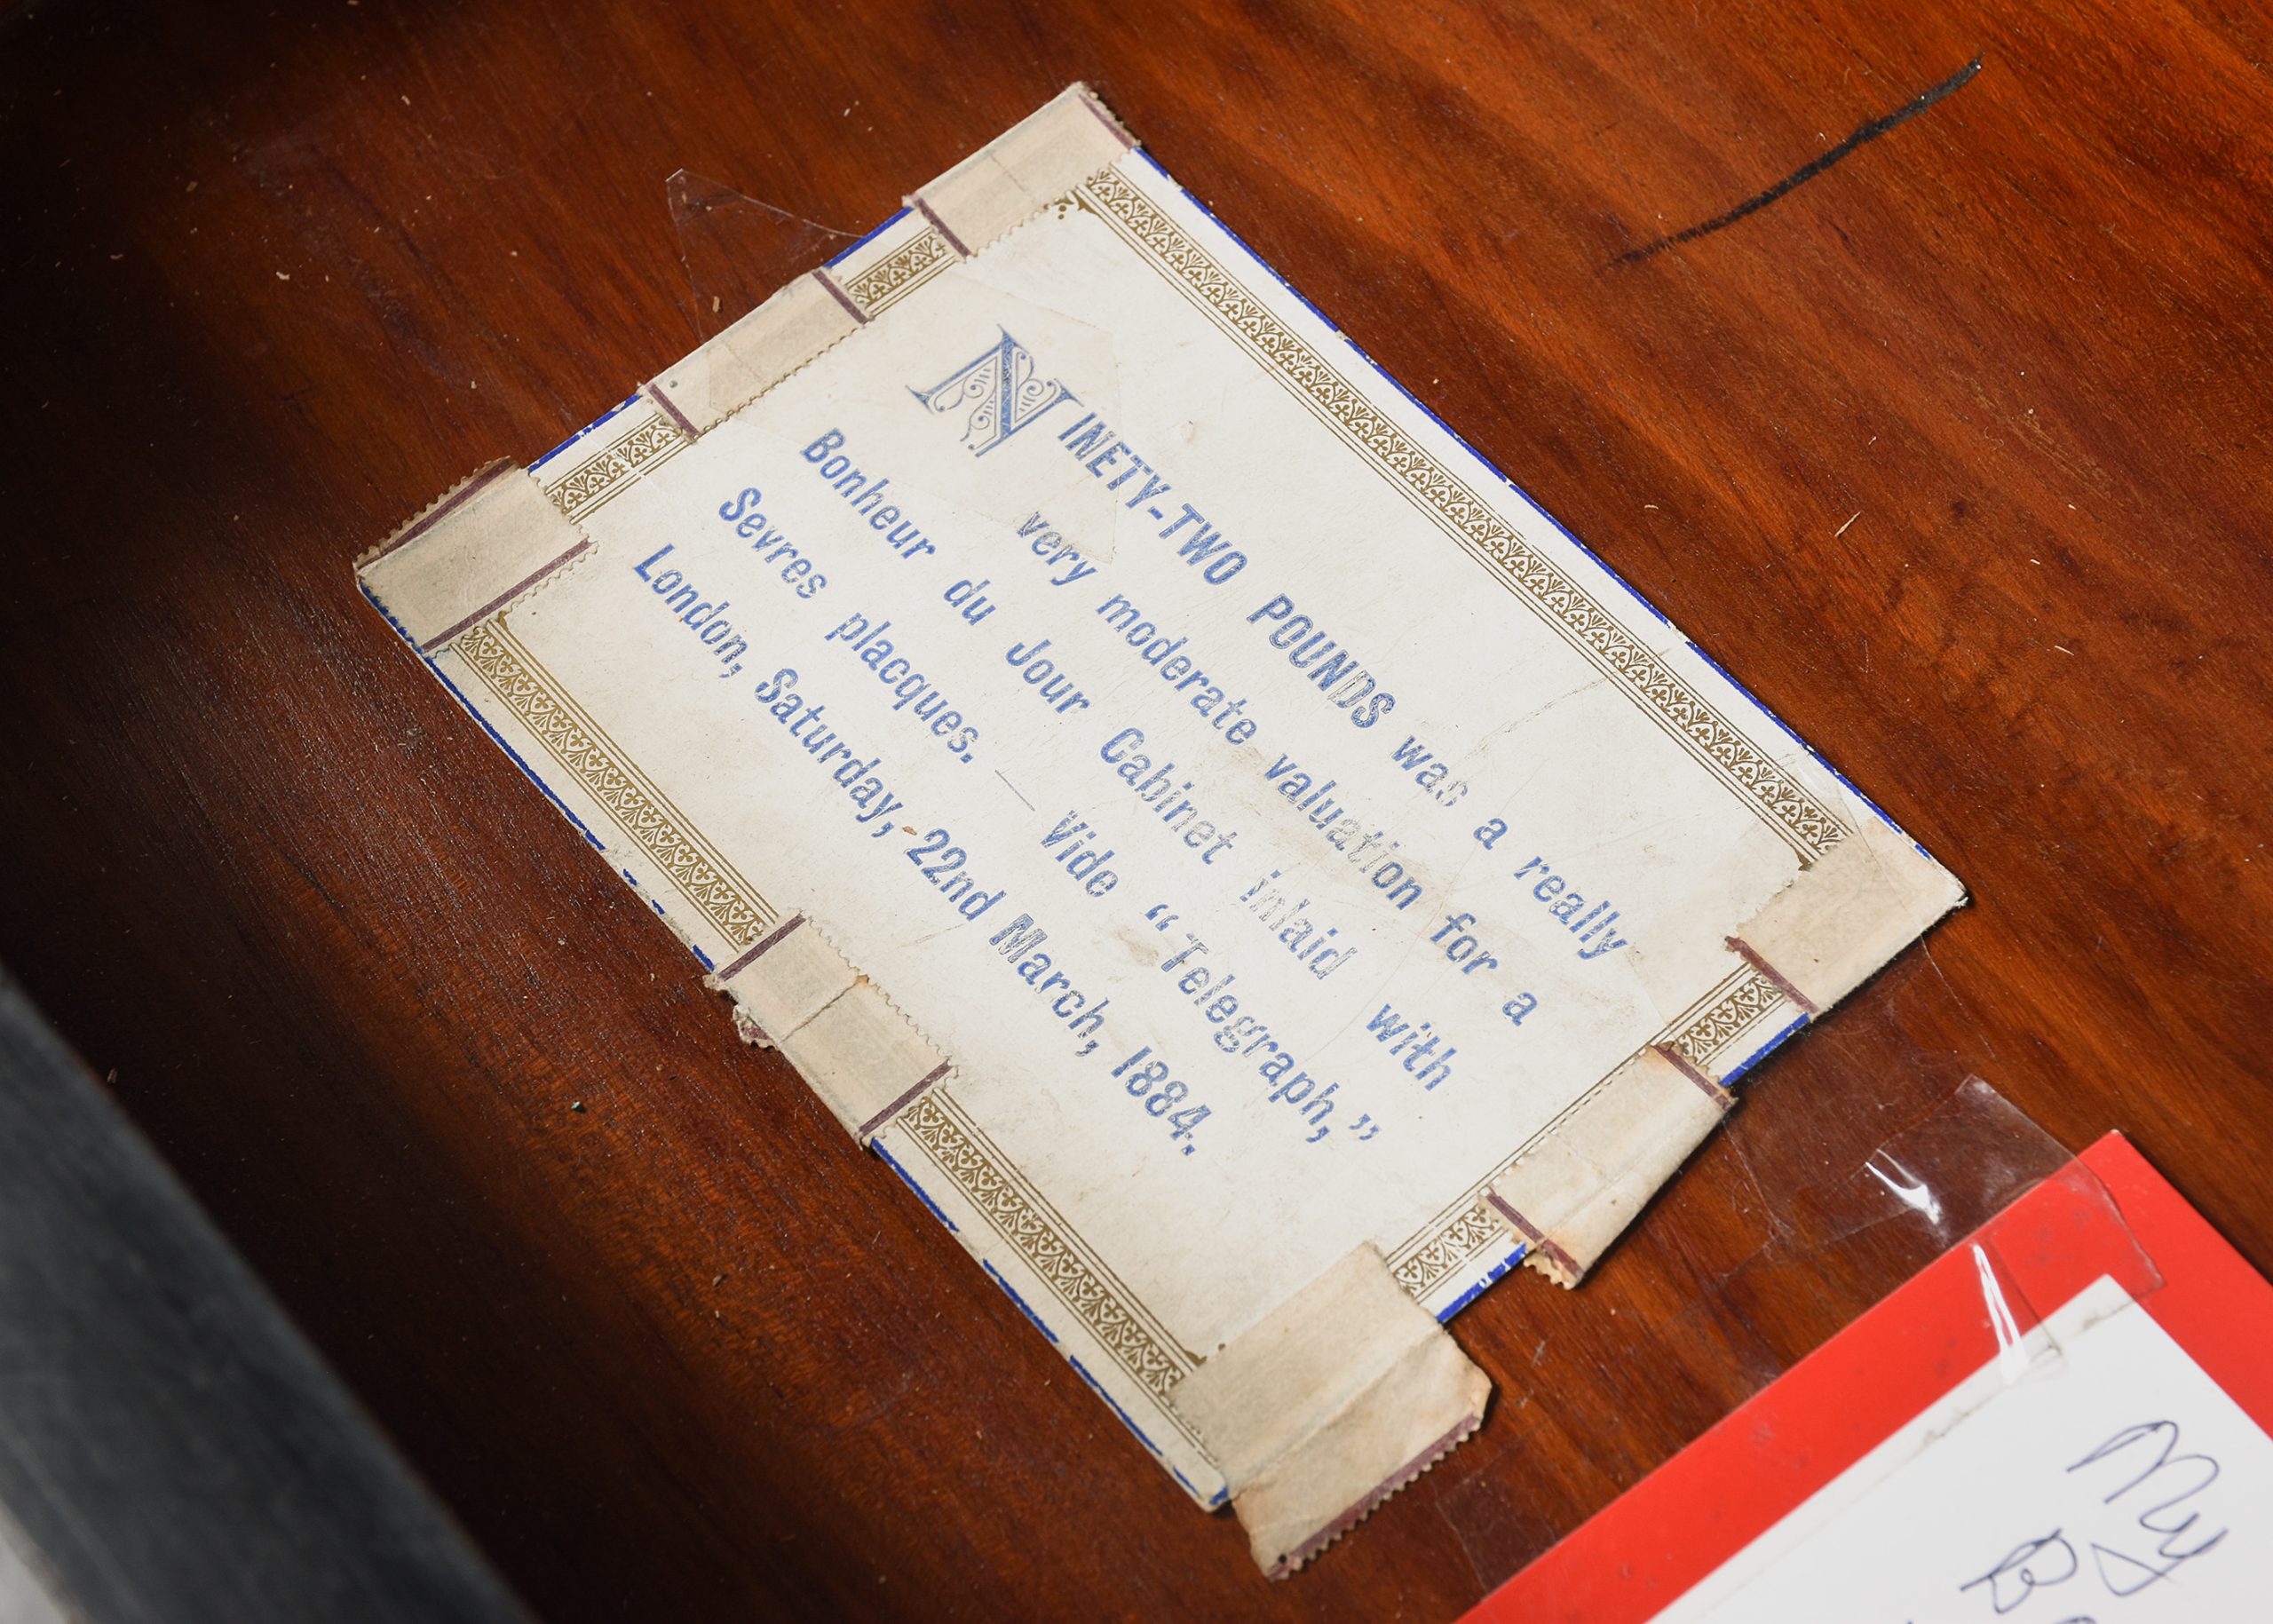 NINETY-TWO POUNDS was a really
very moderate valuation for a
Bonheur du Jour Cabinet inlaid with
Sevres placques. — Vide “Telegraph,”
London, Saturday, 22nd March, 1884.
My